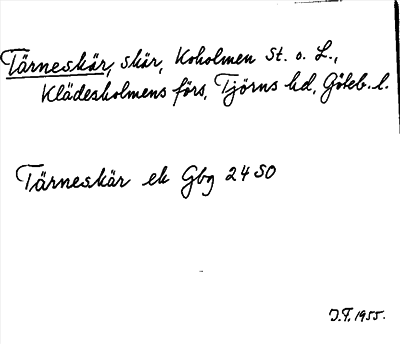 Tärneskär, skär, Koholmen St. o. L.,
Klädesholmens förs, Tjörns hd, Göteb. l.
Tärneskär ek Gbg 24 SO
J.F. 1955.